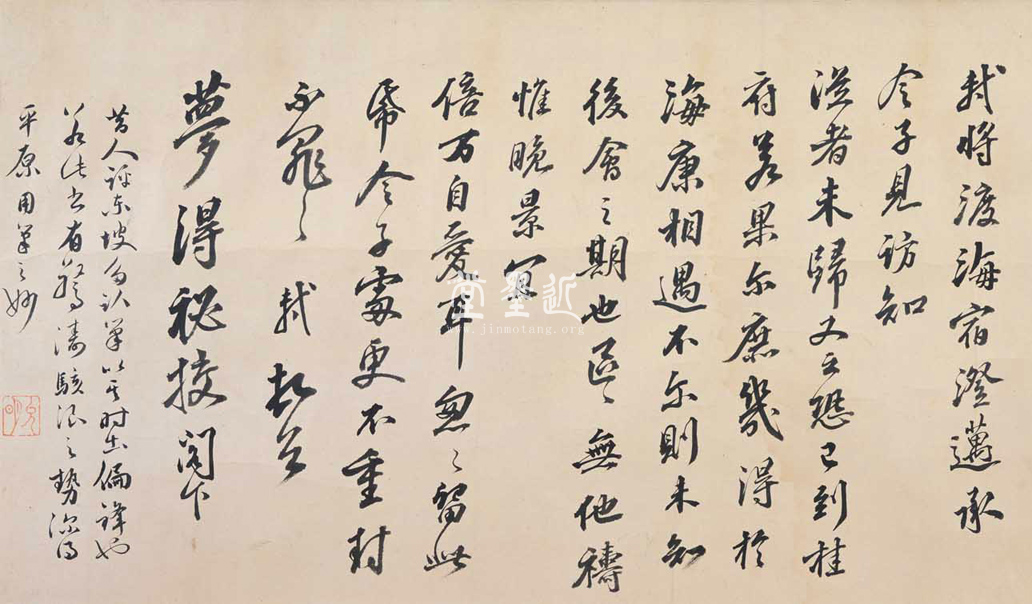 軾將渡海宿澄邁承
令子見訪知
從者未歸又云恐已到桂
府若果尔庶幾得於
海康相遇不尔則未知
後會之期也區〻無他禱
惟晚景宜
倍万自愛耳忽〻留此
帋令子處更不重封
不罪〻 軾頓首
夢得秘校閣下
昔人評東坡為臥筆以其时出偏鋒也
若此書有驚濤駭浪之勢深得
平原用筆之妙
近墨堂
www.jinmotang.org